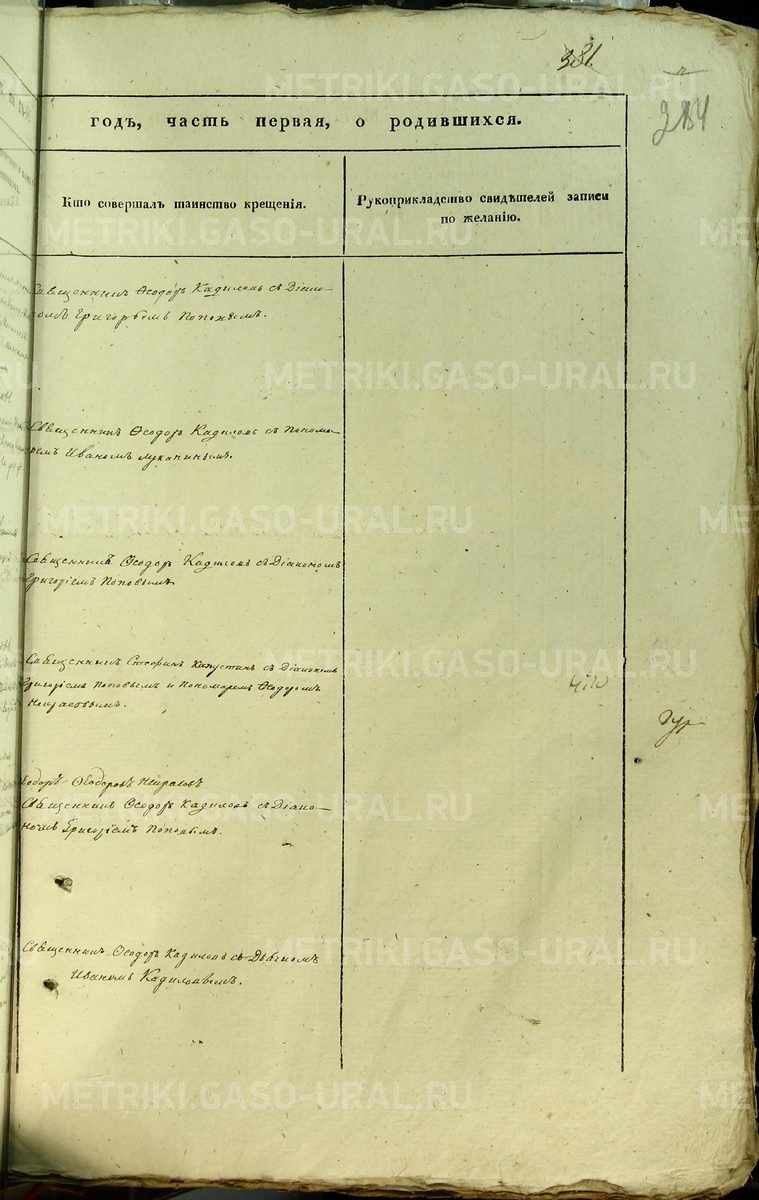 381.
284
годъ, часть первая, о родившихся.
Кто совершалъ таинство крещенія.
Рукоприкладство свидѣтелей записи
по желанію.
Священникъ Ѳеодоръ Кадиловъ съ Діако-
номъ Григорьемъ Поповымъ.
Священникъ Ѳеодоръ Кадиловъ съ Понома-
ремъ Иваномъ Лукинымъ.
Священникъ Ѳеодоръ Кадиловъ съ Діакономъ
Григоріемъ Поповымъ
Священникъ Стефанъ Капустинъ съ Діакономъ
Григоріемъ Поповымъ и Пономаремъ Ѳеодоромъ
Ѳеодоровъ
Священникъ Ѳеодоръ Кадиловъ съ Діако-
номъ Григоріемъ Поповымъ.
Священникъ Ѳеодоръ Кадиловъ съ Дьячкомъ
Иваномъ Кадиловымъ.
METRIKI.GASO-URAL.RU